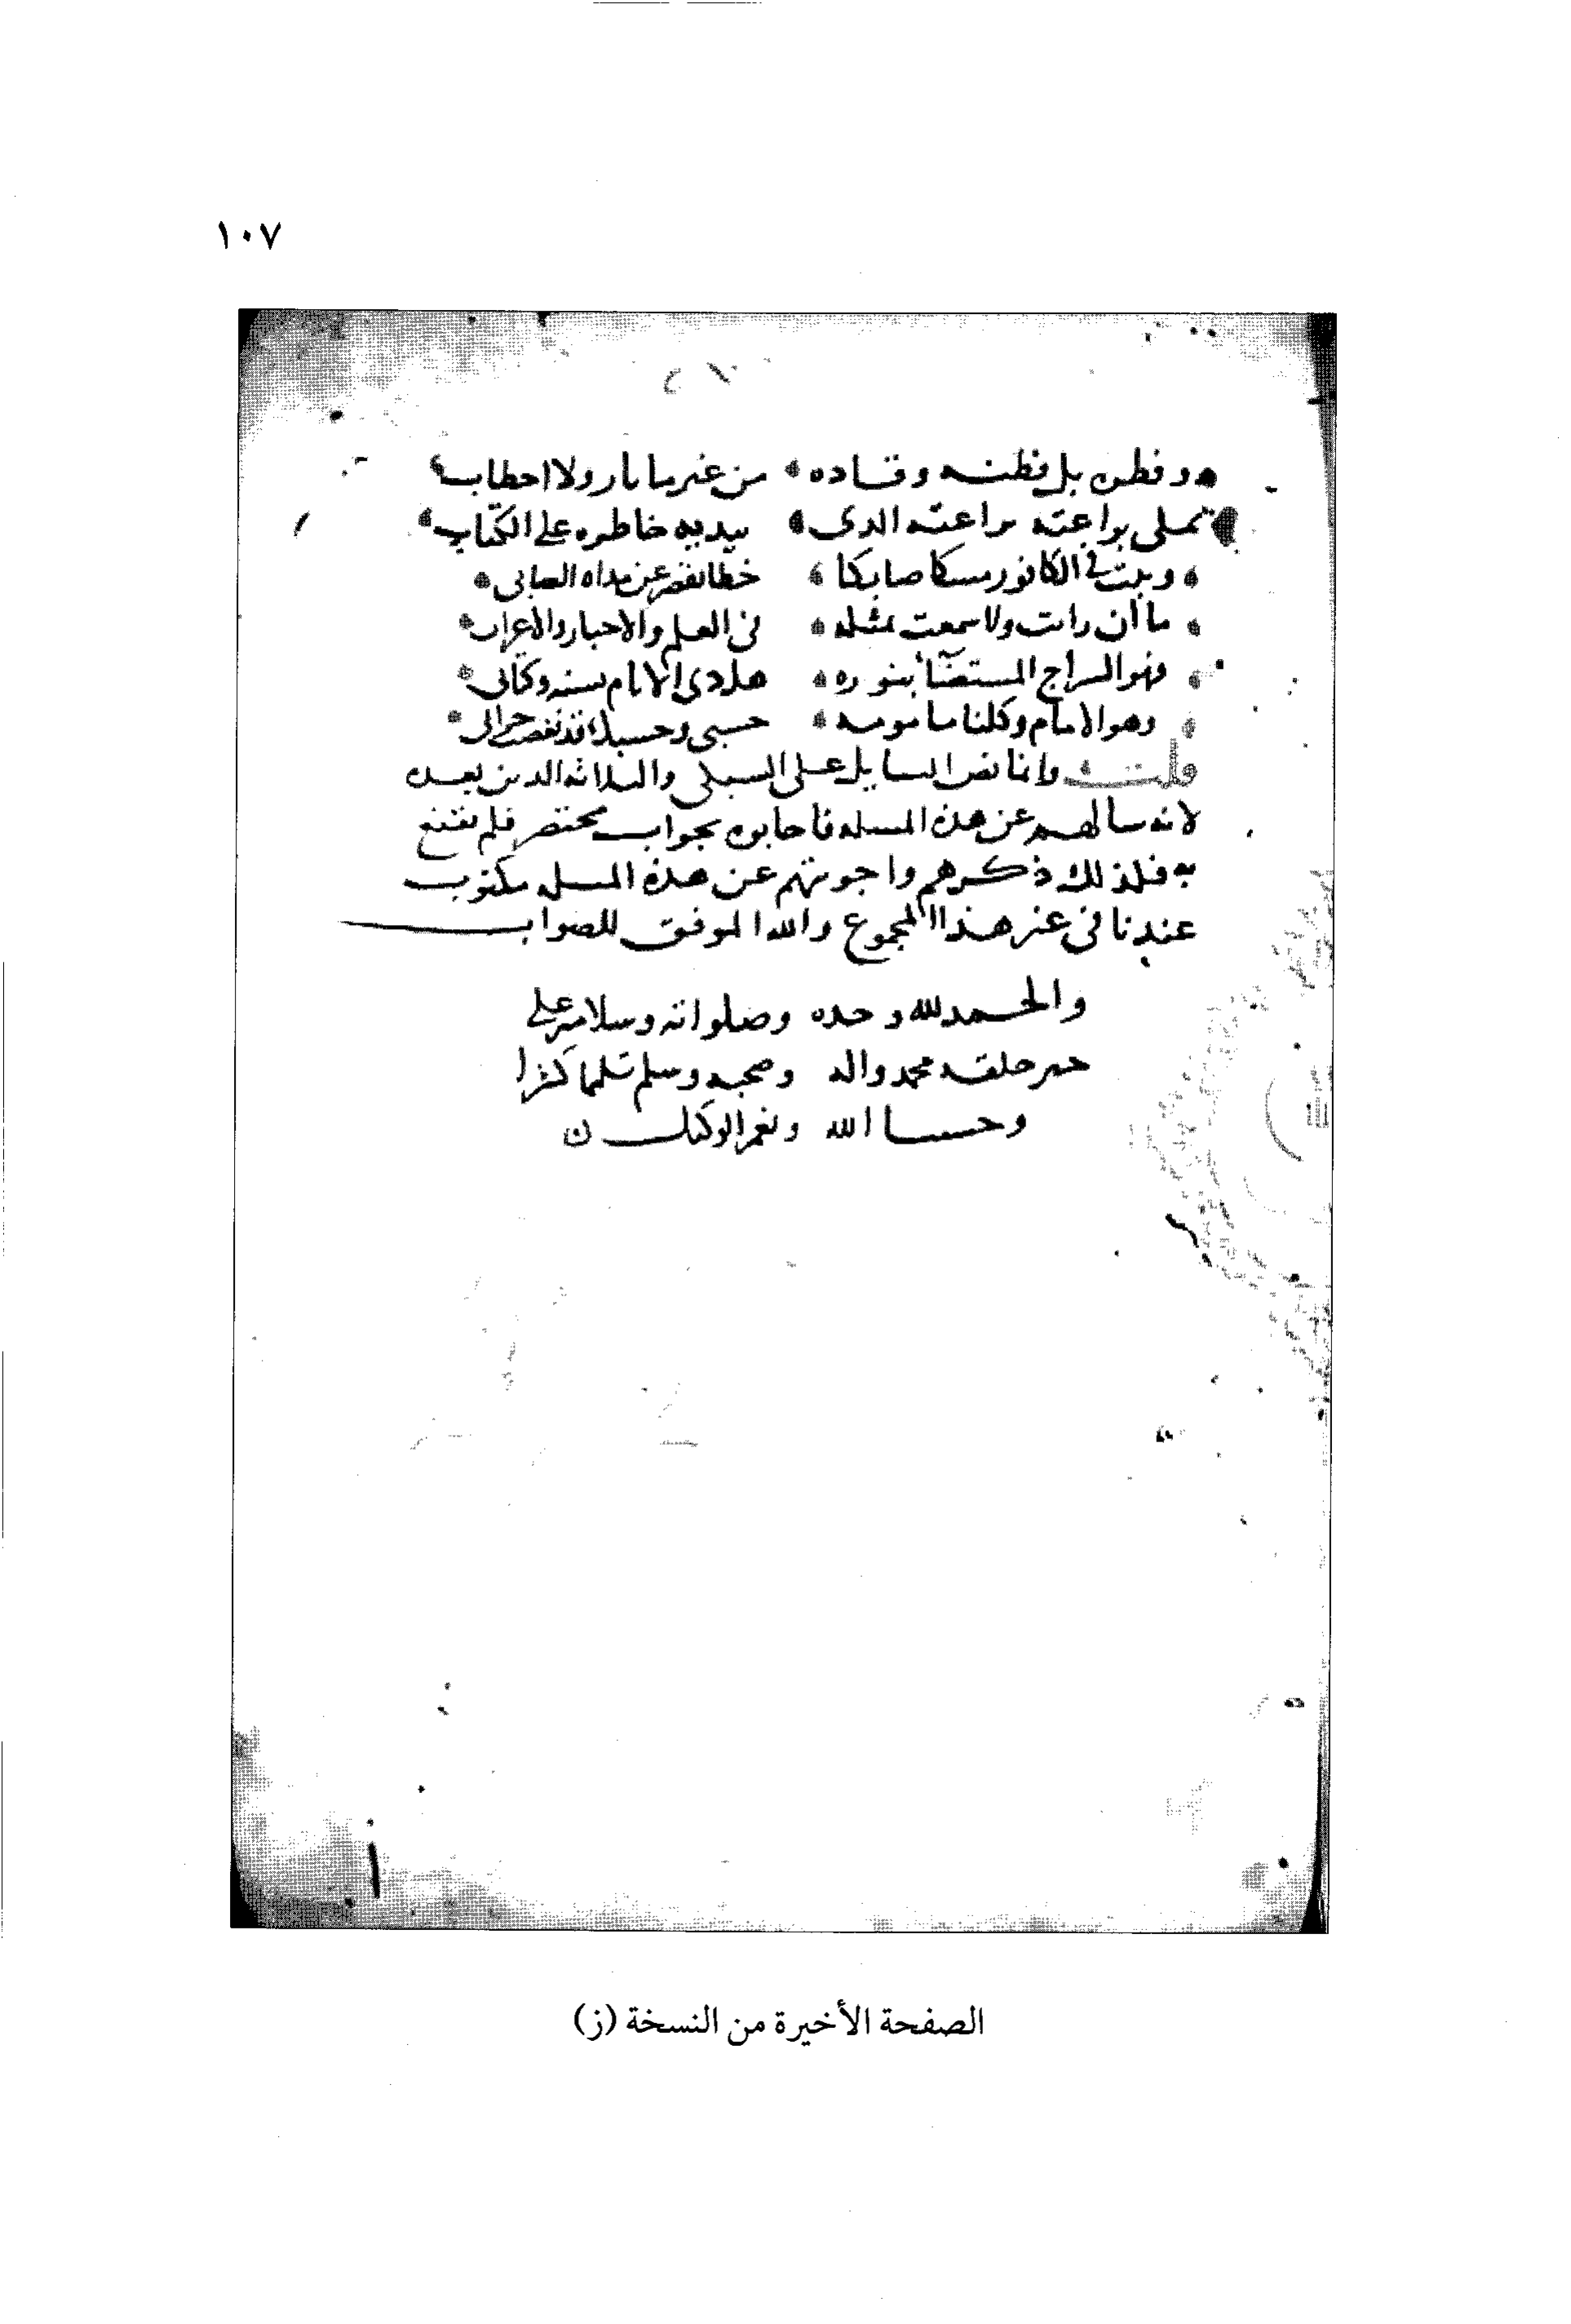 ١٠٧
وفطن بل فطنه وقاده من غير ما نار ولا احطاب
تملى براعته براعته الدى يبديه خاطره على الكتاب
فى الكافور مسكا صابكا خطا يقصر عن مداه الصابى
ما أن رات ولا سمعت بمثله فى العلم والاخبار والاعراب
فهو السراج المستضآ بنوره هادى الانام بسنه وكتاب
وهو الامام وكلنا مامومه حسبى وحسبك
قلت وانما نص السايل على السبكى والثلاثه الدين بعده
لانه سالهم عن هده المسله فاجابوه بجواب مختصر فلم يقتنع
به فلذلك ذكرهم واجوبتهم عن هذه المسله مكتوب
عندنا فى غير هذا المجموع والله الموفق للصواب
والحمد لله وحده وصلواته وسلامه على
خير خلقه محمد واله وصحبه وسلم تسليما كثيرا
وحسبنا الله ونعم الوكيل
الصفحة الأخيرة من النسخة (ز)